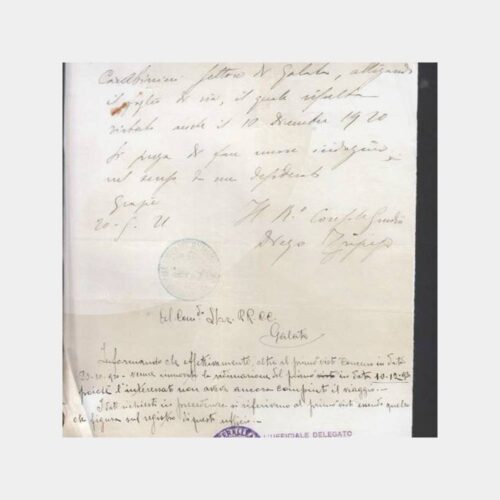 Carabinieri Settore di Galata, allegando
il foglio di via, il quale risulta
vistato anche il 10 dicembre 1920
Si prega di fare nuove indagini
nel senso da me desiderato
Grazie
20-5-21
Il R.o Console Giudice
Diego
Al Com.do Staz. RR CC.
Galata
Informando che effettivamente, oltre al primo visto concesso in data
in data 10-12-920
poiché l'interessato non aveva ancora compiuto il viaggio.-
I dati richiesti in precedenza si riferivano al primo visto essendo quello
che figura sul registro di questo ufficio.-
L'UFFICIALE DELEGATO